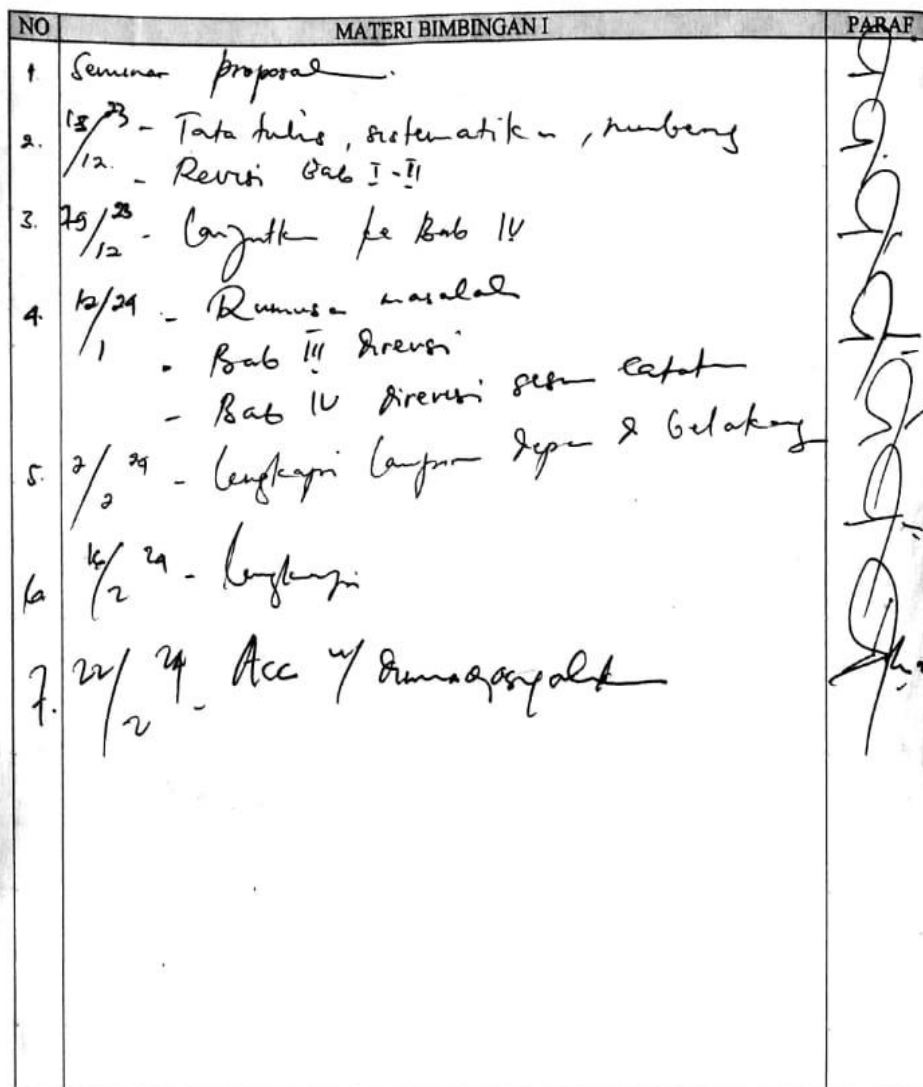 NO MATERI BIMBINGAN I PARAF
1. Seminar proposal.
2. 18/12 23 - Tata tulis, sistematika, numbering
- Revisi Bab I - II
3. 29/12 23 - Lanjutkan ke Bab IV
4. 12/1 24 - Rumusan masalah
- Bab III direvisi
- Bab IV direvisi sesuai catatan
5. 2/2 24 - lengkapi lampiran depan & belakang
6. 16/2 24 - lengkapi
7. 22/2 24 - Acc u/ dimunaqasyahkan